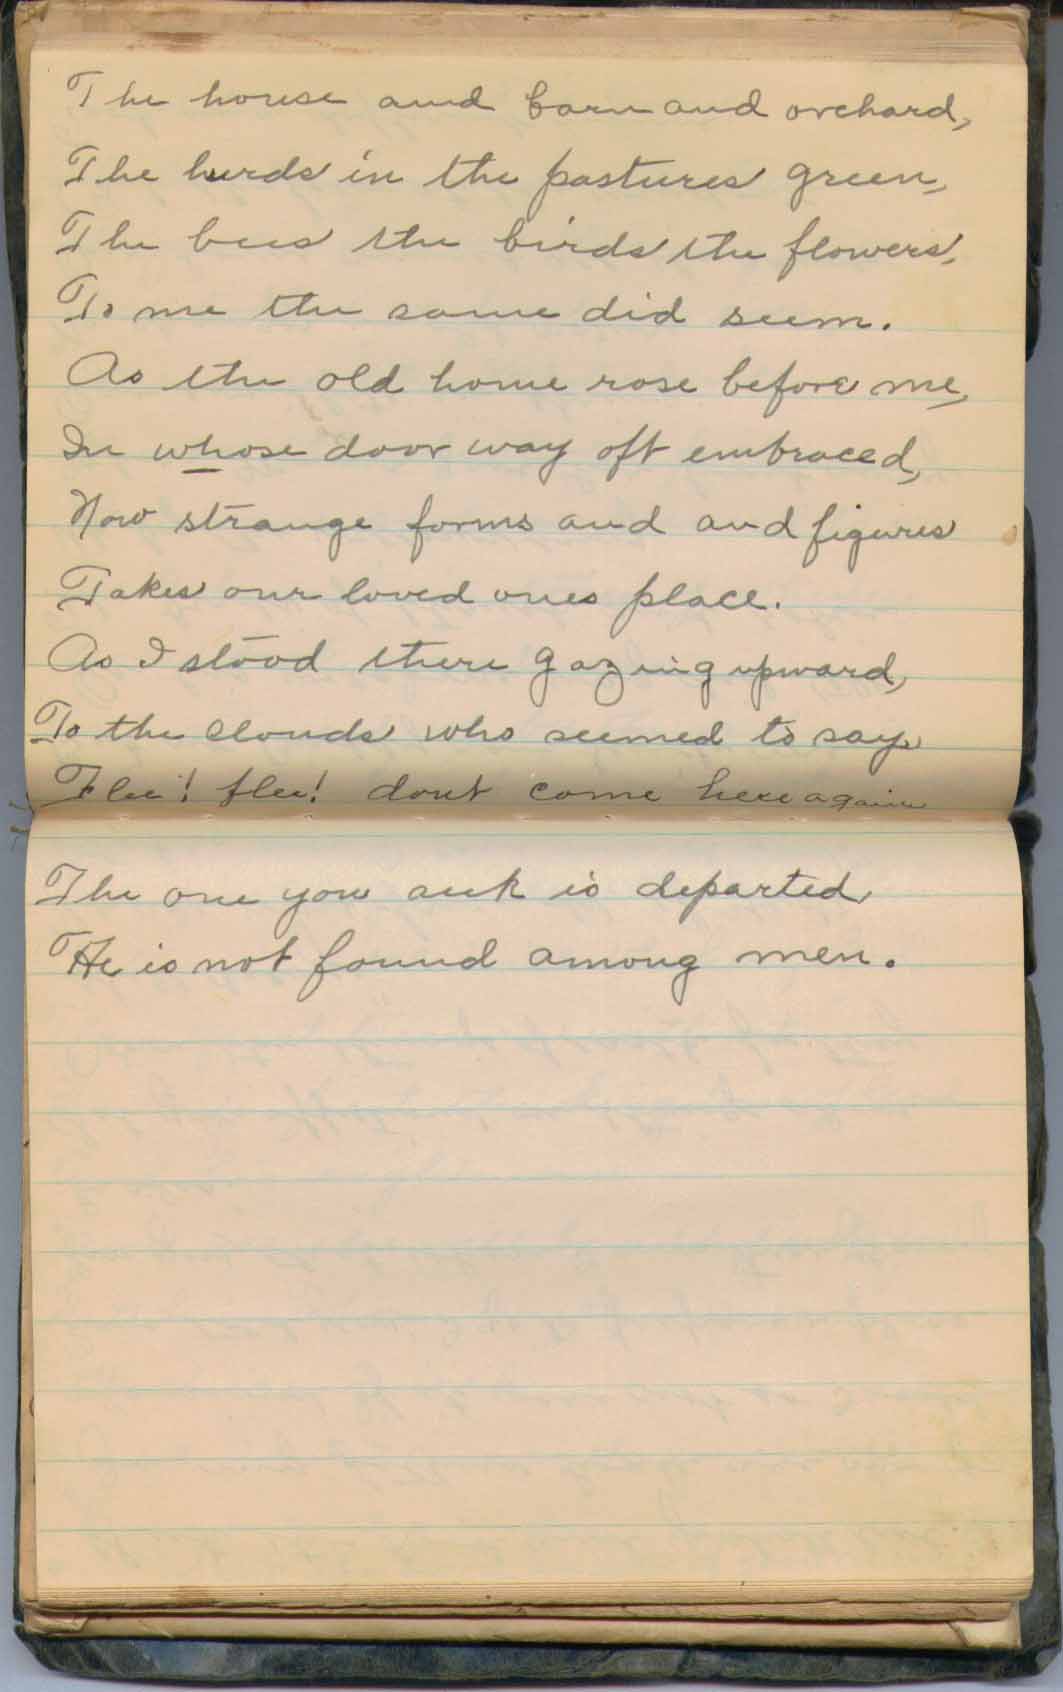 The house and barn and orchard,
The herds in the pastures green,
The bees the birds the flowers,
To me the same did seem.
As the old home rose before me,
In whose door way oft embraced,
Now strange forms and and figures
Takes our loved ones place.
As I stood there gazing upward,
To the clouds who seemed to say
Flee! flee! dont come here again
The one you seek is departed
He is not found among men.